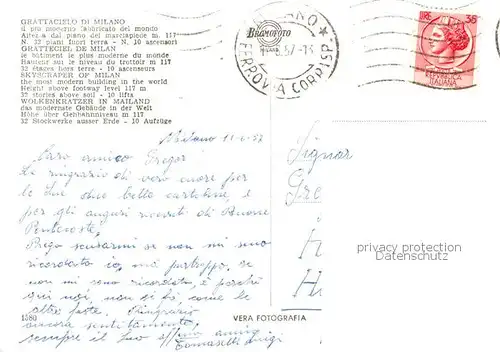 GRATTACIELO DI MILANO
il più moderno fabbricato del mondo
Altezza dal piano del marciapiede m. 117
N. 32 piani fuori terra - N. 10 ascensori
GRATTECIEL DE MILAN
le bâtiment le plus moderne du monde
Hauteur sur le niveau du trottoir m 117
32 étages hors terre - 10 ascenseurs
SKYSCRAPER OF MILAN
the most modern building in the world
Height above footway level 117 m
32 stories above soil - 10 lifts
WOLKENKRATZER IN MAILAND
das modernste Gebäude in der Welt
Höhe über Gehbahnniveau m 117
32 Stockwerke ausser Erde - 10 Aufzüge
Bromofoto
MILANO
FERROVIA CORRISP.
LIRE 35
REPVBBLICA
ITALIANA
Milano 11-6-57
Caro amico Gregor
La ringrazio di vero cuore per
le Sue due belle cartoline, e
per gli auguri ricevuti di Buone
Pentecoste,
Prego scusarmi se non mi sono
ricordato io, ma purtroppo, se
non mi sono ricordato, è perché
qui noi, non si fà come le
altre feste. Ringrazio
ancora sentitamente,
sempre il Suo aff. amico
Tomaselli Luigi
Signor
Gre
privacy protection
Datenschutz
1580
VERA FOTOGRAFIA